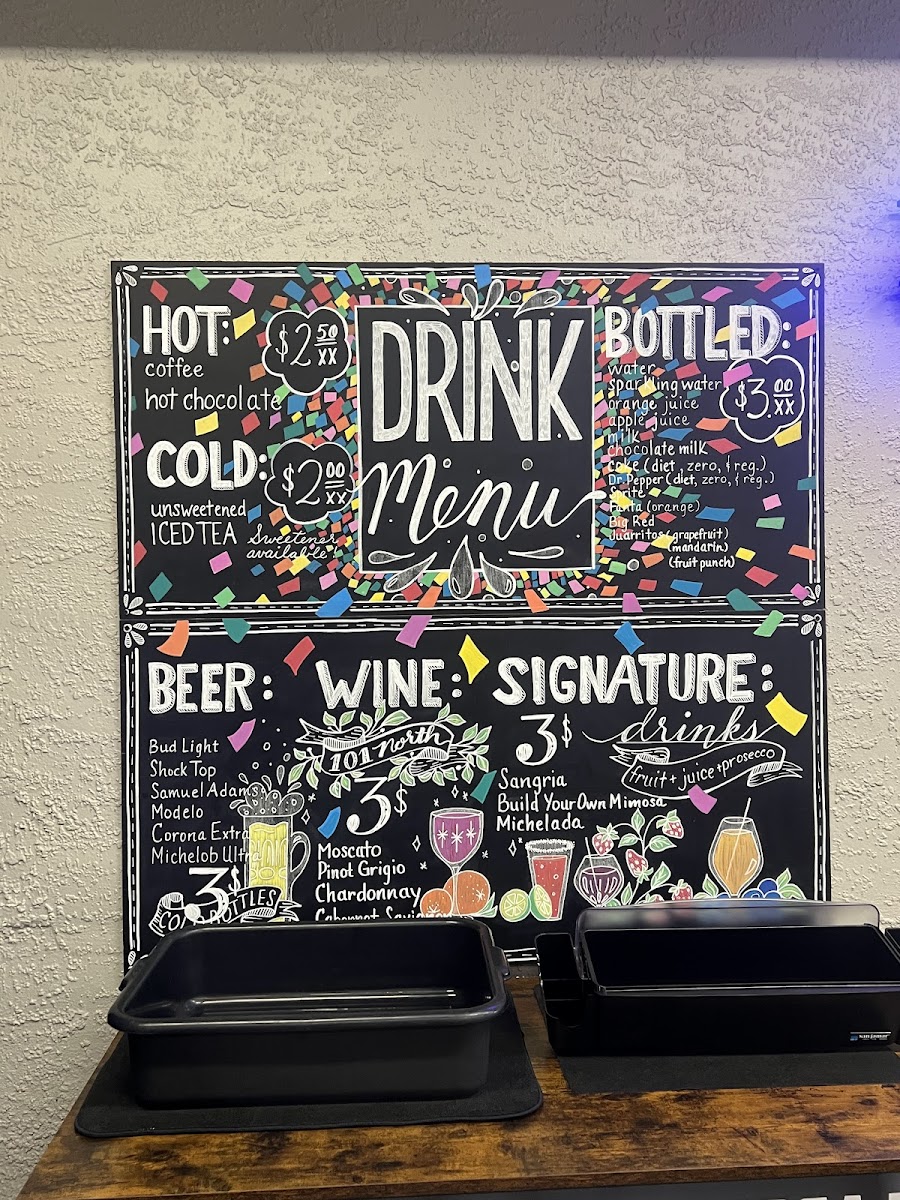 HOT:
$2 50/XX
coffee
hot chocolate
COLD:
$2 00/XX
unsweetened
ICED TEA
Sweetener
available
DRINK
Menu
BOTTLED:
$3.00/XX
water
sparkling water
orange juice
apple juice
milk
chocolate milk
Coke (diet, zero, & reg.)
Dr. Pepper (diet, zero, & reg.)
Sprite
Fanta (orange)
Big Red
Juarritos (grapefruit)
(mandarin)
(fruit punch)
BEER:
Bud Light
Shock Top
Samuel Adams
Modelo
Corona Extra
Michelob Ultra
3$
BOTTLES
WINE:
101 north
3$
Moscato
Pinot Grigio
Chardonnay
Cabernet Sauvignon
SIGNATURE:
3$ drinks
fruit + juice + prosecco
Sangria
Build Your Own Mimosa
Michelada